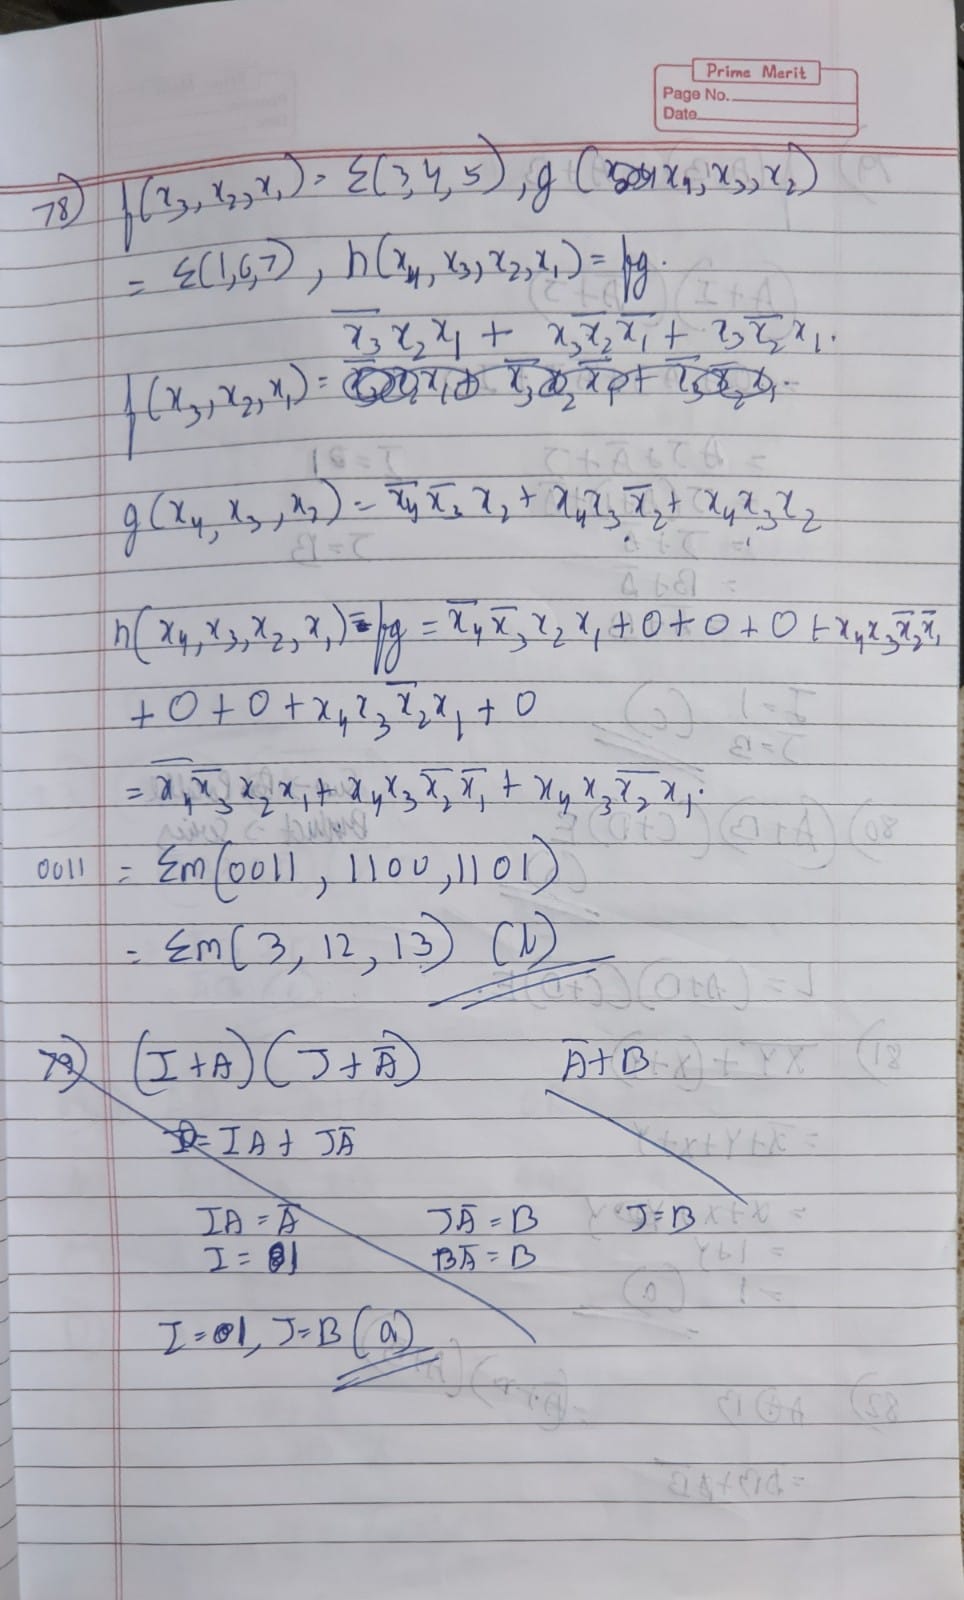 Prime Merit
Page No.
Date
78) f(x₃, x₂, x₁) = Σ(3,4,5), g(x₄, x₃, x₂)
= Σ(1,6,7), h(x₄, x₃, x₂, x₁) = fg.
x̅₃ x₂ x₁ + x₃ x̅₂ x̅₁ + x₃ x̅₂ x₁.
f(x₃, x₂, x₁) =
g(x₄, x₃, x₂) = x̅₄ x̅₃ x₂ + x₄ x₃ x̅₂ + x₄ x₃ x₂
h(x₄, x₃, x₂, x₁) = fg = x̅₄ x̅₃ x₂ x₁ + 0 + 0 + 0 + x₄ x₃ x̅₂ x̅₁
+ 0 + 0 + x₄ x₃ x̅₂ x₁ + 0
= x̅₄ x̅₃ x₂ x₁ + x₄ x₃ x̅₂ x̅₁ + x₄ x₃ x̅₂ x₁.
0011 = Σm(0011, 1100, 1101)
= Σm(3, 12, 13)
79) (I+A)(J+A̅) A̅+B
= IA + JA̅
IA = A̅ JA̅ = B J=B
I = 1 BA̅ = B
I = 1, J=B (a)